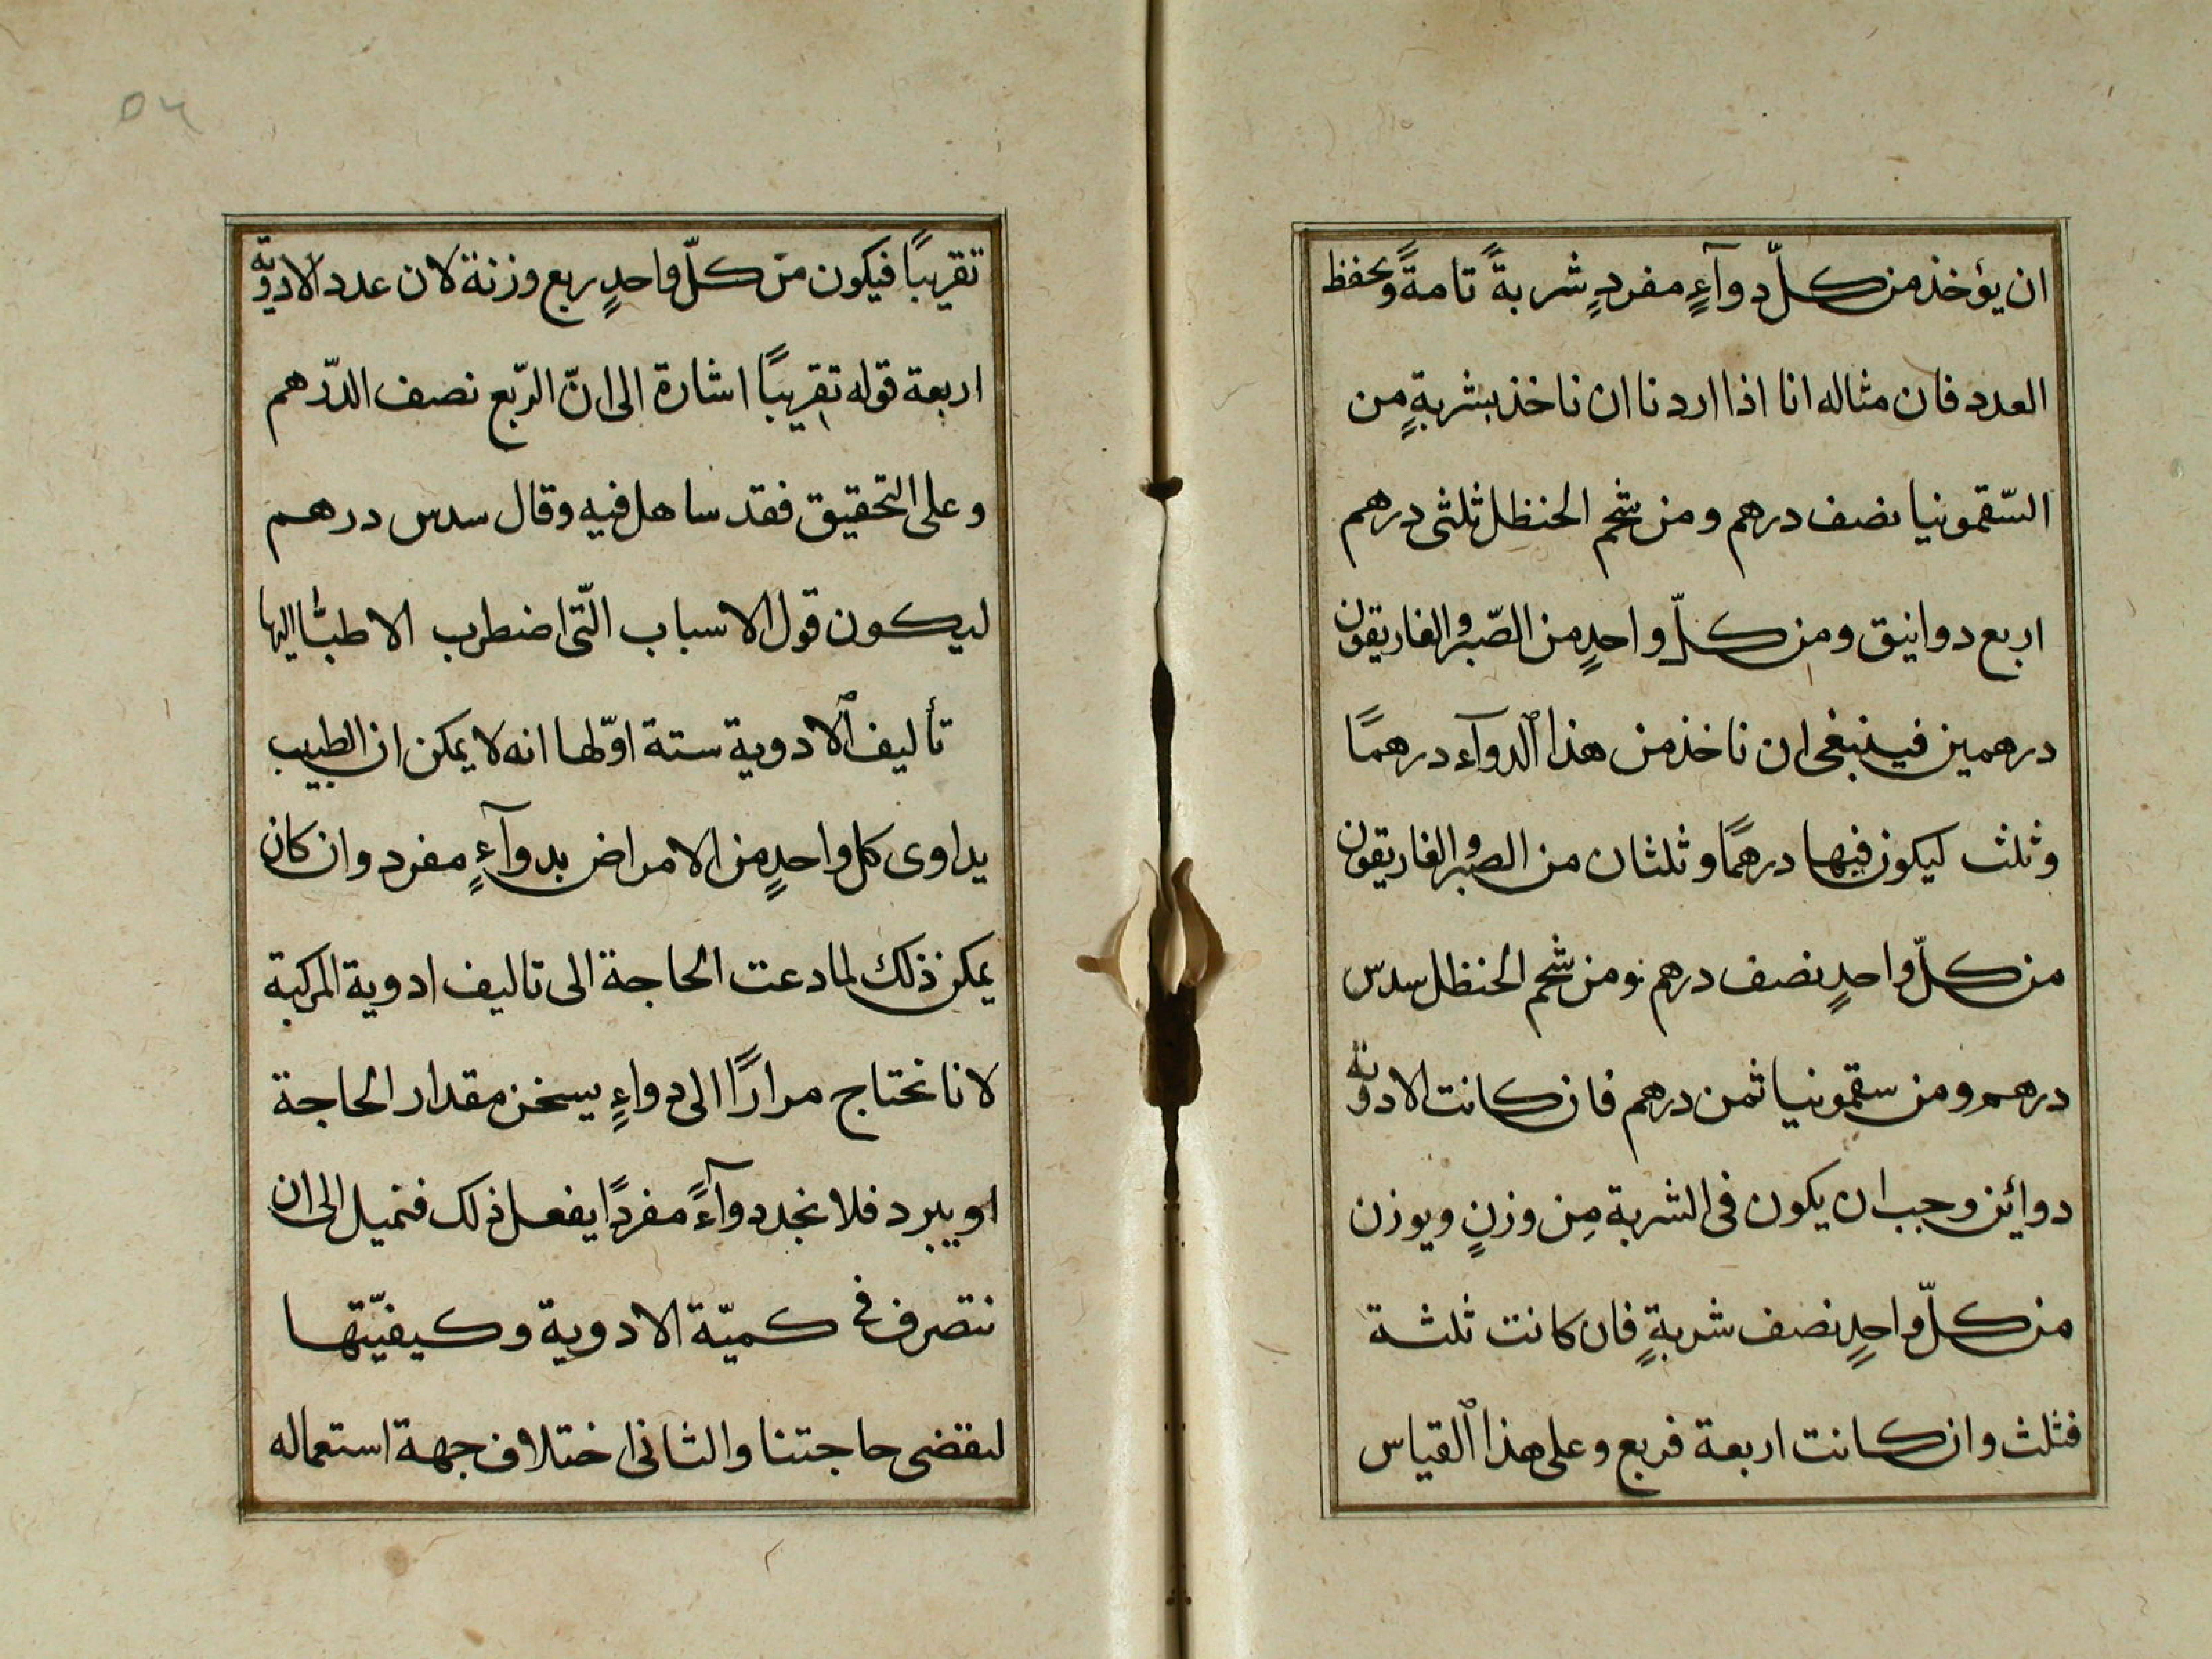 ان يؤخذ من كلّ دوآءٍ مفردٍ شربةً تامةً ويحفظ
العدد فان مثاله انا اذا اردنا ان ناخذ بشربةٍ من
السّقمونيا نصف درهم ومن شحم الحنظل ثلثى درهم
اربع دوانيق ومن كلّ واحدٍ من الصّبر والغاريقون
درهمين فينبغى ان ناخذ من هذا الدوآء درهمًا
وثلث ليكون فيها درهمًا وثلثان من الصبر والغاريقون
من كلّ واحدٍ نصف درهم ومن شحم الحنظل سدس
درهم ومن سقمونيا ثمن درهم فان كانت الادوية
دوائين وجب ان يكون فى الشربة مِن وزنٍ ويوزن
من كلّ واحدٍ نصف شربةٍ فان كانت ثلثة
فثلث وان كانت اربعة فربع وعلى هذا القياس
تقريبًا فيكون من كلّ واحدٍ ربع وزنة لان عدد الادوية
اربعة قوله تقريبًا اشارة الى انّ الرّبع نصف الدّرهم
وعلى التحقيق فقد ساهل فيه وقال سدس درهم
ليكون قول الاسباب الّتى اضطرب الاطبّا اليها
تأليف الادوية ستة اوّلها انه لا يمكن ان الطبيب
يداوى كل واحدٍ من الامراض بدوآءٍ مفرد وان كان
يمكن ذلك لما دعت الحاجة الى تاليف ادوية المركبة
لانا نحتاج مرارًا الى دواءٍ يسخن مقدار الحاجة
او يبرد فلا نجد دوآءً مفردًا يفعل ذلك فتميل الى ان
نتصرف فى كميّة الادوية وكيفيّتها
لىقضى حاجتنا والثانى اختلاف جهة استعماله